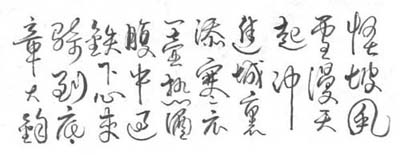 怪坡風
雪漫天
起冲
進城裏
添寒衣
一壶热酒
腹中過
鉄下心来
騎到底
章大鈞